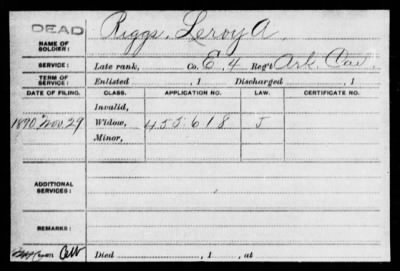 DEAD Riggs, Leroy A.
NAME OF SOLDIER:
SERVICE: Late rank, Co. E. 4 Reg't Ark. Cav.
TERM OF SERVICE: Enlisted , 1 Discharged , 1
DATE OF FILING. CLASS. APPLICATION NO. LAW. CERTIFICATE NO.
Invalid,
1890, Nov. 29 Widow, 455.618 J
Minor,
ADDITIONAL SERVICES:
REMARKS:
Died , 1 , at